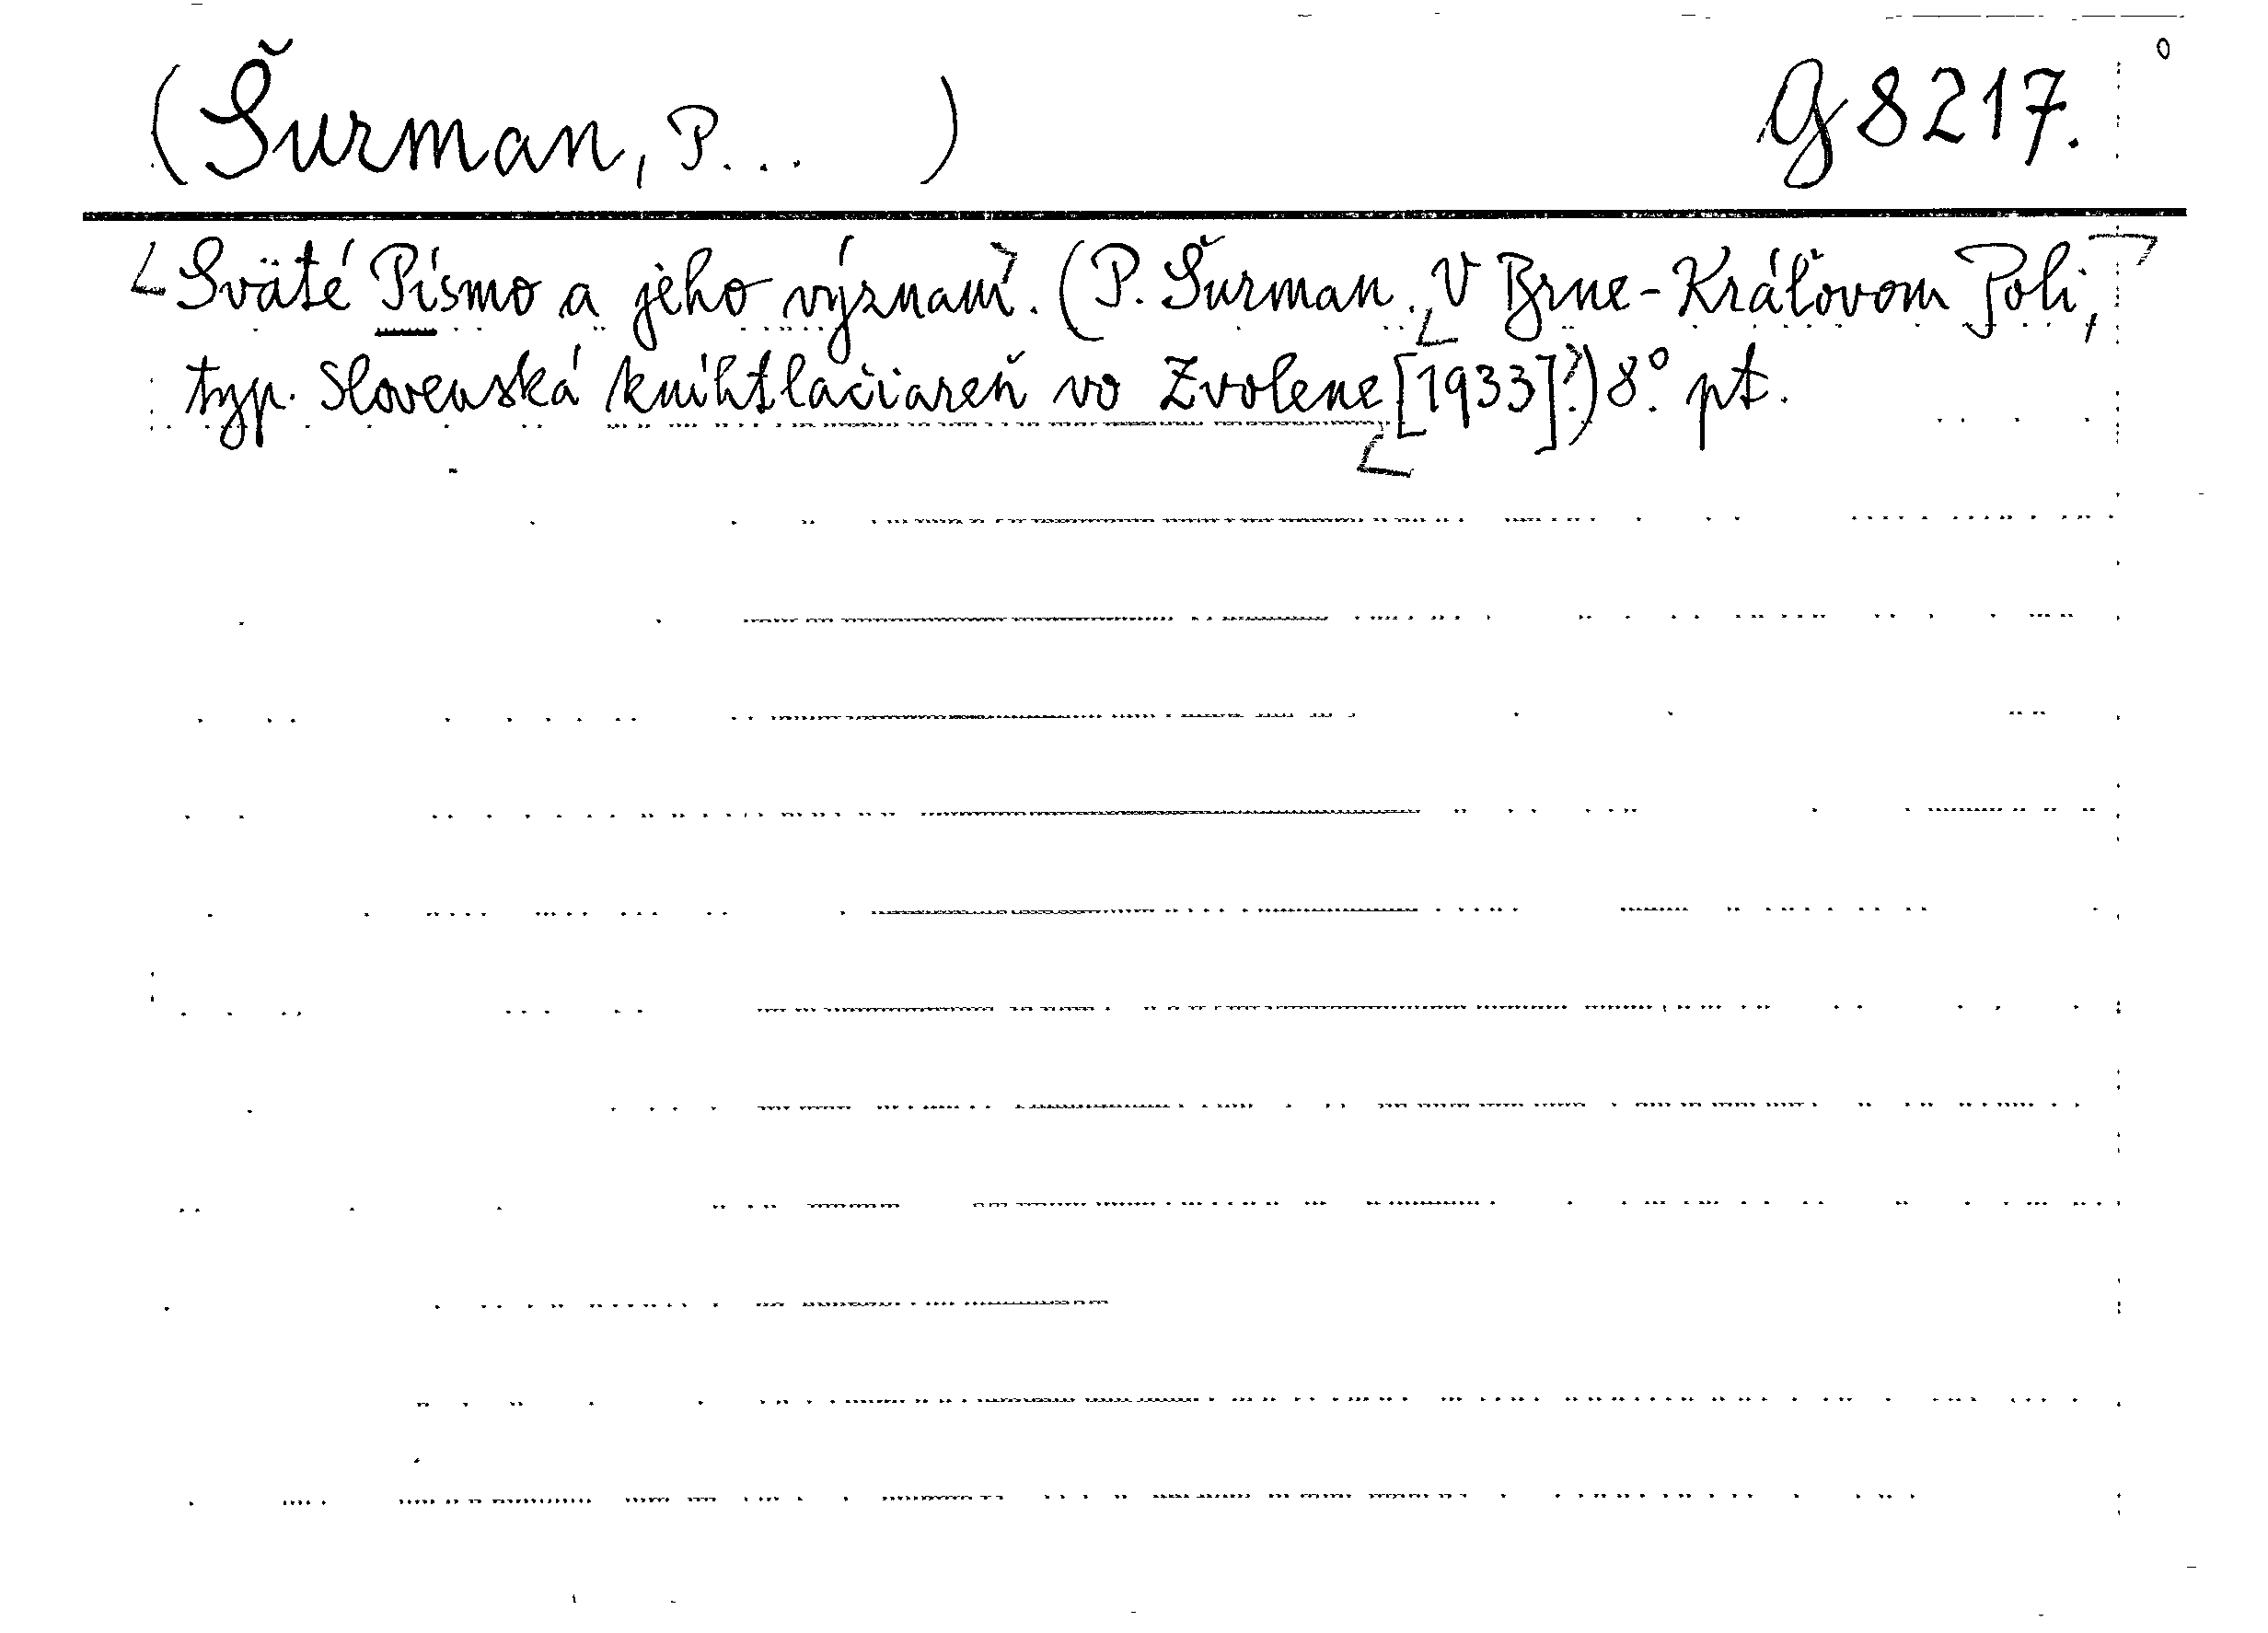 (Šurman, P... ) G 8217.
Sväté Písmo a jeho význam. (P. Šurman. V Brne-Kráľovom Poli,
typ. Slovenská knihtlačiareň vo Zvolene [1933].) 8°. pt.